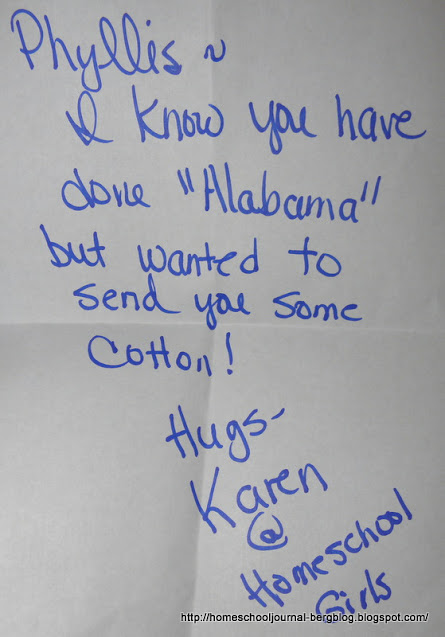 Phyllis ~
I know you have
done "Alabama"
but wanted to
send you some
Cotton!
Hugs-
Karen
@
Homeschool
Girls
http://homeschooljournal-bergblog.blogspot.com/